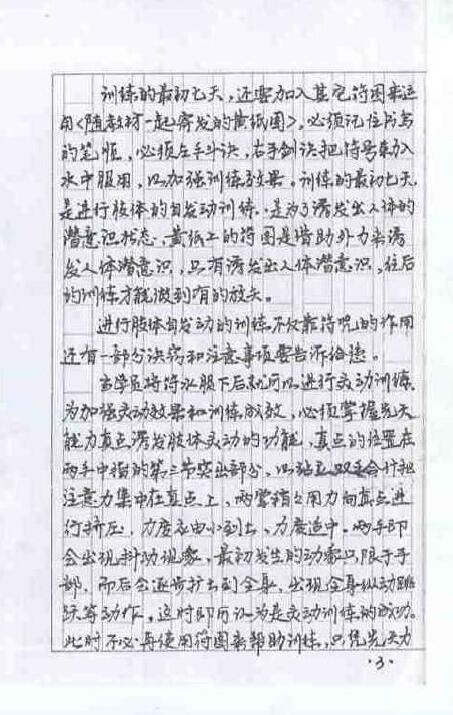 训练的最初七天，还要加入其它符图来运
用〈随教材一起寄发的黄纸图〉，必须记住所写
的笔顺，必须左手斗诀，右手剑诀把符号来加入
水中服用，以加强训练效果。训练的最初七天
是进行肢体的自发动训练，是为了诱发出人体的
潜意识状态，黄纸上的符图是借助外力来诱
发人体潜意识，只有诱发出人体潜意识，往后
的训练才能做到有的放矢。
进行肢体自发动的训练不仅靠符咒的作用
还有一部分诀窍和注意事项要告诉给您。
当学员将符水服下后就可以进行灵动训练，
为加强灵动效果和训练成效，必须掌握先天
能力真点诱发肢体灵动的功能，真点的位置在
两手中指的第三节突出部分，以站立双手合十把
注意力集中在真点上，两掌稍之用力向真点进
行挤压，力度应由小到大，力度适中。两手即
会出现抖动现象，最初发生的动象只限于手
部，而后会逐步扩大到全身，出现全身纵动跳
跃等动作。这时即可认为是灵动训练的成功。
此时不必再使用符图来帮助训练，只凭先天力
·3·